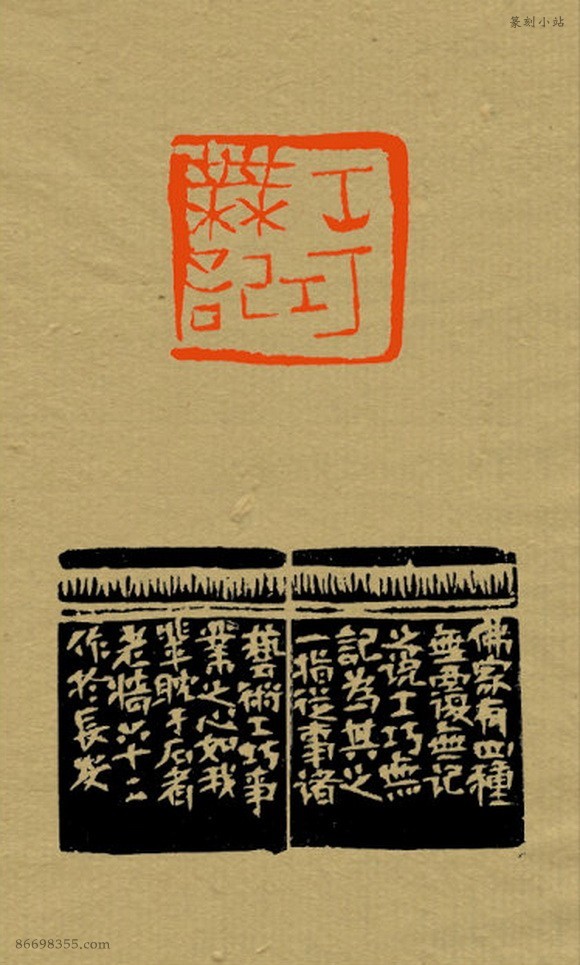 篆刻小站
工巧
無記
佛家有四種
無覆無記
之説工巧無
記為其之
一指從事諸
藝術工巧事
業之心如我
輩耽于石者
老墻六十二
作於長安
86698355.com